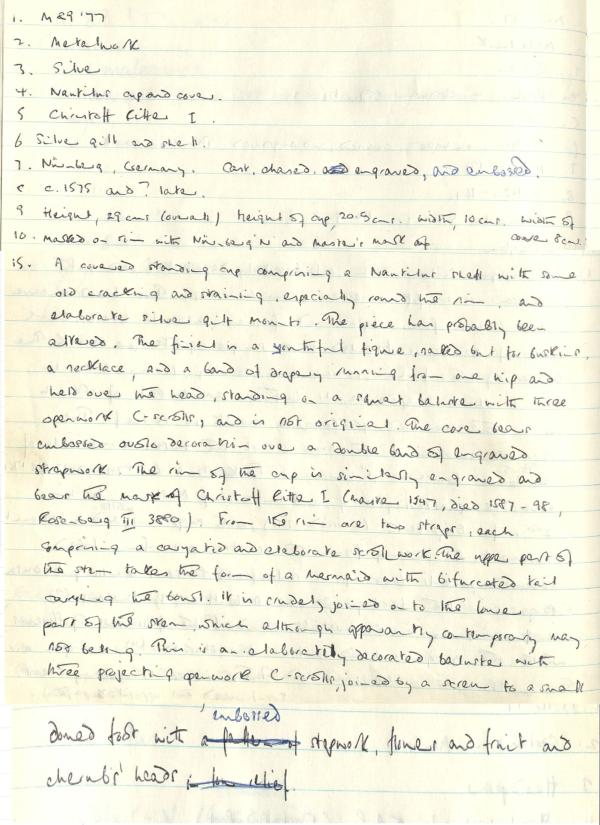 1. M89 '77
2. Metalwork
3. Silver
4. Nautilus cup and cover.
5 Christoff Ritter I.
6 Silver gilt and shell.
7. Nürnberg, Germany. Cast, chased, engraved, and embossed.
8 c.1575 and ? later.
9 Height, 29 cms (overall) Height of cup, 20.5 cms. Width, 10 cms. Width of
cover 8 cms
10. Marked on rim with Nürnberg N and master's mark of
15. A covered standing cup comprising a Nautilus shell, with some
old cracking and staining, especially round the rim, and
elaborate silver gilt mounts. The piece has probably been
altered. The finial is a youthful figure, naked but for buskins,
a necklace, and a band of drapery running from one hip and
held over the head, standing on a squat baluster with three
openwork C-scrolls, and is not original. The cover bears
embossed ovolo decoration over a double band of engraved
strapwork. The rim of the cup is similarly engraved and
bears the mark of Christoff Ritter I (master 1547, died 1587-98,
Rosenberg III 3880). From the rim are two straps, each
comprising a caryatid and elaborate scrollwork. The upper part of
the stem takes the form of a mermaid with bifurcated tail
carrying the bowl. It is crudely joined on to the lower
part of the stem, which although apparently contemporary may
not belong. This is an elaborately decorated baluster with
three projecting openwork C-scrolls, joined by a screw to a small
domed foot with embossed strapwork, flowers and fruit and
cherubs' heads.